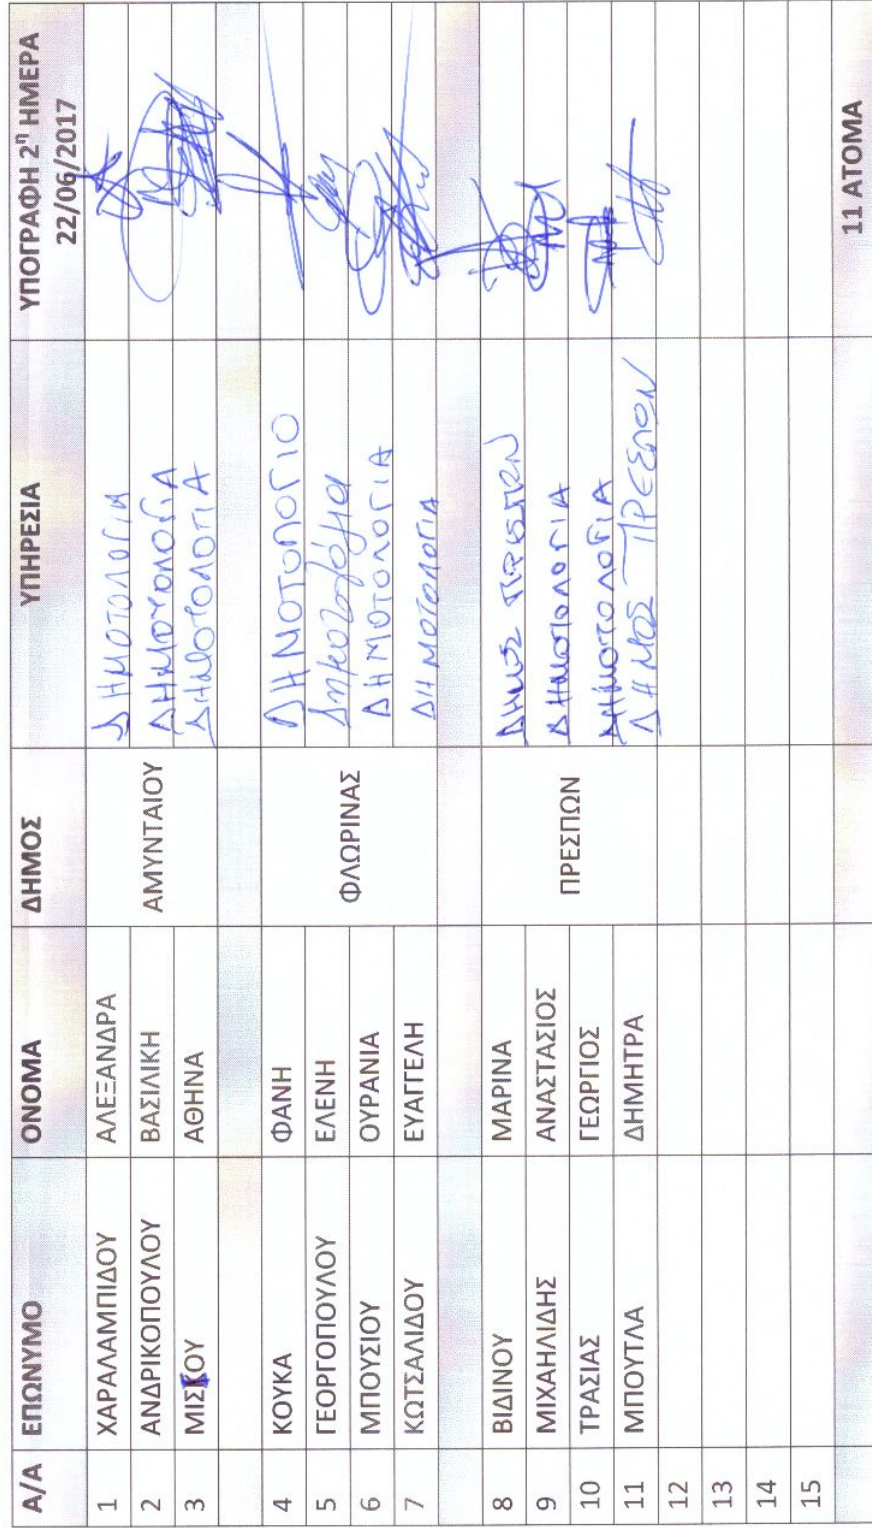 Α/Α ΕΠΩΝΥΜΟ ΟΝΟΜΑ ΔΗΜΟΣ ΥΠΗΡΕΣΙΑ ΥΠΟΓΡΑΦΗ 2η ΗΜΕΡΑ 22/06/2017
1 ΧΑΡΑΛΑΜΠΙΔΟΥ ΑΛΕΞΑΝΔΡΑ ΔΗΜΟΤΟΛΟΓΙΑ
2 ΑΝΔΡΙΚΟΠΟΥΛΟΥ ΒΑΣΙΛΙΚΗ ΑΜΥΝΤΑΙΟΥ ΔΗΜΟΤΟΛΟΓΙΑ
3 ΜΙΣΚΟΥ ΑΘΗΝΑ ΔΗΜΟΤΟΛΟΓΙΑ
4 ΚΟΥΚΑ ΦΑΝΗ ΔΗΜΟΤΟΛΟΓΙΟ
5 ΓΕΩΡΓΟΠΟΥΛΟΥ ΕΛΕΝΗ ΦΛΩΡΙΝΑΣ Δημοτολόγια
6 ΜΠΟΥΣΙΟΥ ΟΥΡΑΝΙΑ ΔΗΜΟΤΟΛΟΓΙΑ
7 ΚΩΤΣΑΛΙΔΟΥ ΕΥΑΓΓΕΛΗ ΔΗΜΟΤΟΛΟΓΙΑ
8 ΒΙΔΙΝΟΥ ΜΑΡΙΝΑ ΔΗΜΟΣ ΠΡΕΣΠΩΝ
9 ΜΙΧΑΗΛΙΔΗΣ ΑΝΑΣΤΑΣΙΟΣ ΠΡΕΣΠΩΝ ΔΗΜΟΤΟΛΟΓΙΑ
10 ΤΡΑΣΙΑΣ ΓΕΩΡΓΙΟΣ ΔΗΜΟΤΟΛΟΓΙΑ
11 ΜΠΟΥΤΛΑ ΔΗΜΗΤΡΑ ΔΗΜΟΣ ΠΡΕΣΠΩΝ
12
13
14
15
11 ΑΤΟΜΑ